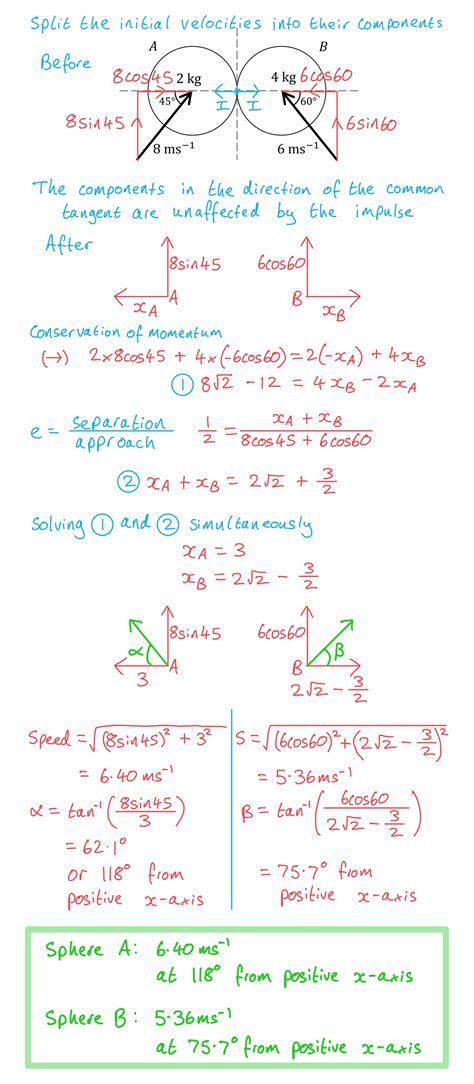 Split the initial velocities into their components
Before
A
B
8cos45
2 kg
4 kg
6cos60
45°
I
I
60°
8sin45
6sin60
8 ms⁻¹
6 ms⁻¹
The components in the direction of the common
tangent are unaffected by the impulse
After
8sin45
6cos60
x_A
A
B
x_B
Conservation of momentum
(→) 2×8cos45 + 4×(-6cos60) = 2(-x_A) + 4x_B
① 8√2 - 12 = 4x_B - 2x_A
e = separation / approach
1/2 = (x_A + x_B) / (8cos45 + 6cos60)
② x_A + x_B = 2√2 + 3/2
Solving ① and ② simultaneously
x_A = 3
x_B = 2√2 - 3/2
α
8sin45
6cos60
β
3
A
B
2√2 - 3/2
Speed = √((8sin45)² + 3²)
= 6.40 ms⁻¹
α = tan⁻¹(8sin45 / 3)
= 62.1°
or 118° from
positive x-axis
S = √((6cos60)² + (2√2 - 3/2)²)
= 5.36ms⁻¹
β = tan⁻¹(6cos60 / (2√2 - 3/2))
= 75.7° from
positive x-axis
Sphere A: 6.40 ms⁻¹
at 118° from positive x-axis
Sphere B: 5.36ms⁻¹
at 75.7° from positive x-axis